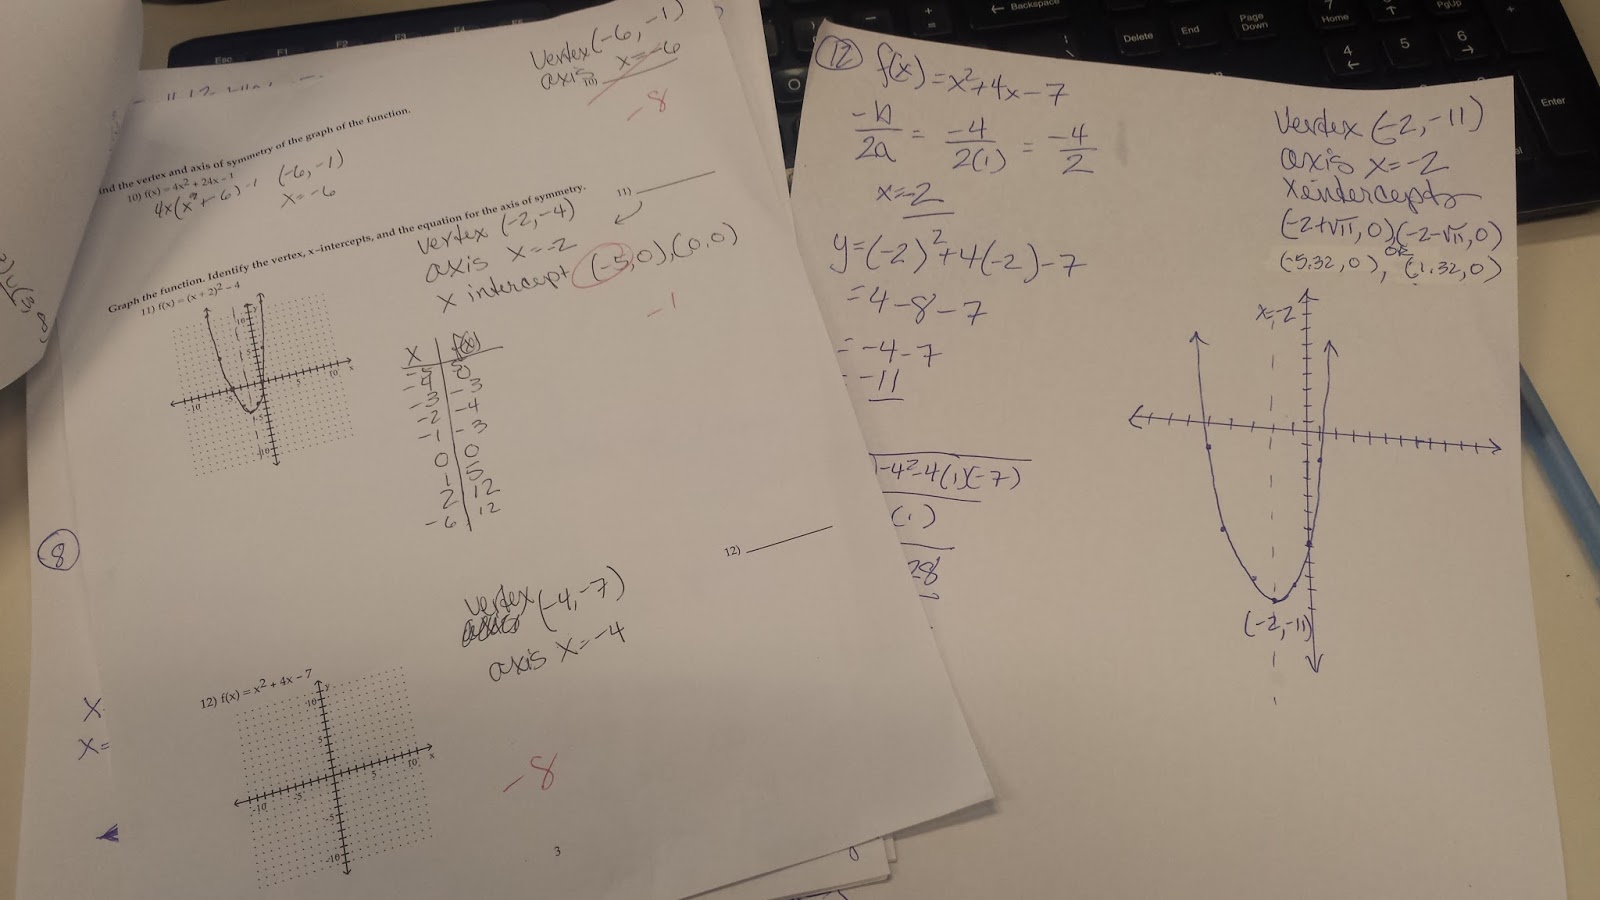 Vertex (-6, -1)
axis x=-6
10)
-8
ind the vertex and axis of symmetry of the graph of the function.
10) f(x) = 4x² + 24x - 1
(-6, -1)
x=-6
Graph the function. Identify the vertex, x-intercepts, and the equation for the axis of symmetry.
11) f(x) = (x + 2)² - 4
11)
vertex (-2, -4)
axis x=-2
x intercept (-5, 0), (0, 0)
-1
x f(x)
-4 0
-3 -3
-2 -4
-1 -3
0 0
1 5
2 12
-6 12
y
10
5
-10 -5 5 10 x
-5
-10
8
12)
vertex (-4, -7)
axis x=-4
12) f(x) = x² + 4x - 7
y
10
5
-10 -5 5 10 x
-5
-10
-8
x
x=
3
12 f(x)=x²+4x-7
-b/2a = -4/2(1) = -4/2
x=-2
y=(-2)²+4(-2)-7
=4-8-7
= -4-7
-11
-4²-4(1)(-7)
(1)
28
Vertex (-2, -11)
axis x=-2
x intercepts
(-2+√11, 0)(-2-√11, 0)
or
(-5.32, 0), (1.32, 0)
x=-2
(-2, -11)
Esc
F1
F2
F3
Backspace
Delete
End
Page Down
7
Home
PgUp
4
5
6
+
=
Enter